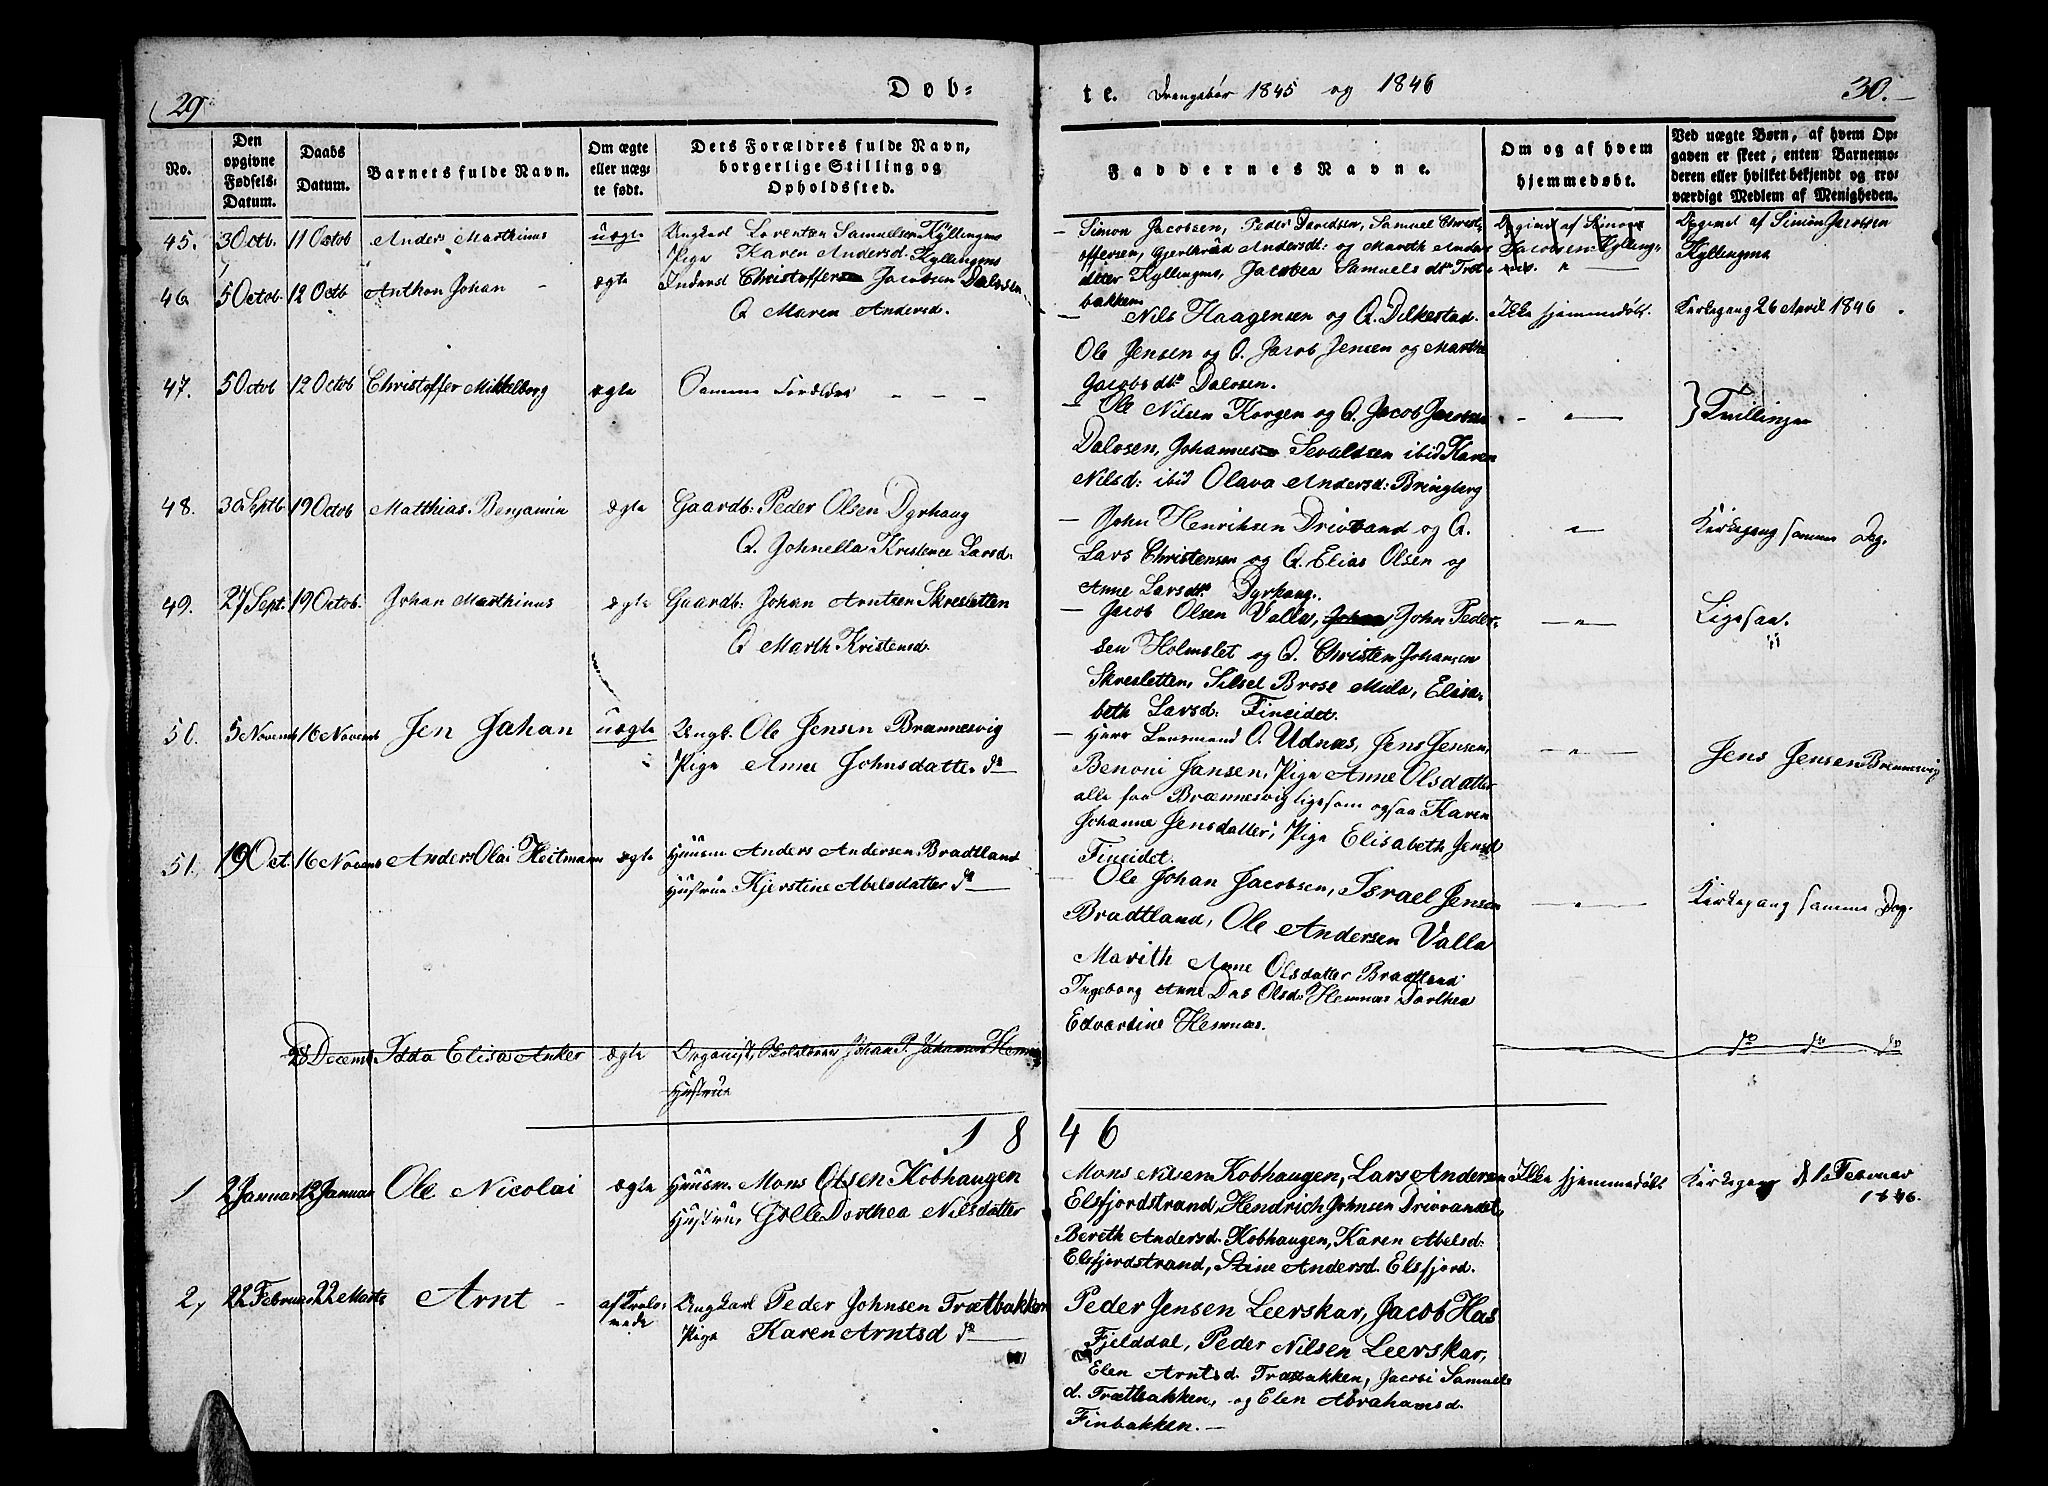 29
Døb-
No.
Den opgivne Fødsels-Datum.
Daabs Datum.
Barnets fulde Navn.
Om ægte eller uægte født.
Dets Forældres fulde Navn, borgerlige Stilling og Opholdssted.
45. 3 Octb. 11 Octob Anders Marthinus uægte Ungkarl Lorentz Samuelsen Kyllingmo
Pige Karen Andersd. Kyllingmo
46 5 Octob. 12 Octb Anthon Johan - ægte Inderst Christoffer Jacobsen Dalosen
Q Maren Andersd.
47. 5 Octob 12 Octob Christoffer Mikkelborg ægte Samme Forældre - - -
48. 30 Septb. 19 Octob Matthias Benjamin ægte Gaardb: Peder Olsen Dyrhaug
Q. Johnella Kristence Larsd:
49. 27 Sept. 19 Octob. Johan Marthinus ægte Gaardb: Johan Arntzen Skresletten
Q Marth Kristensd.
50. 5 Novemb 16 Novemb Jen Jahan uægte Ungk. Ole Jensen Brannesvig
Pige Anne Johnsdatter do
51. 19 Oct. 16 Novemb Anders Olai Heitmann ægte Huusm Anders Andersen Bradtland
Hustrue Kjerstine Abelsdatter do
28 Decemb. Idda Elisa Anker ægte Organist, Skolelærer Johan P. Johansen Hemnæs
Hustrue
18
1 2 Januar 12 Januar Ole Nicolai ægte Huusm. Mons Olsen Kobhaugen
Hustru, Golle Dorthea Nilsdatter
2, 22 Februar 22 Marts Arnt - af Trolovede Ungkarl Peder Johnsen Trætbakken
Pige Karen Arntsd do
te. Drengebør 1845 og 1846
30.
Faddernes Navne.
Om og af hvem hjemmedøbt.
Ved uægte Børn, af hvem Opgaven er skeet, enten Barnemoderen eller hvilket bekjendt og troværdigt Medlem af Menigheden.
Simon Jacobsen, Peder Davidsen, Samuel Christ-
offersen, Gjertrud Andersdt: og Marth Anders
dter Kyllingmo, Jacobea Samuels dtr Træt-
bakken
Opgivet af Simon Jacobsen Kylling-
mo.
Opgivet af Simon Jacobsen
Kyllingmo
Nils Haagensen og Q. Dilkestad.
Ole Jensen og Q. Jacob Jensen og Martha
Jacobs dtr Dalosen.
Ikke hjemmedøbt.
Kirkegang 26 April 1846
Ole Nilsen Korgen og Q. Jacob Jacobsen
Dalosen, Johannes Sevaldsen ibid Karen
Nilsd: ibid Olava Andersd: Bringberg
} Tvillinger
John Henriksen Drivvand og Q.
Lars Christensen og Q. Elias Olsen og
Anne Larsdtr Dyrhaug.
Kirkegang samme Dag.
Jacob Olsen Valla, Johan John Peder-
sen Holmslet og Q. Christen Johansen
Skresletten, Silsel Brose Mula, Elisa-
beth Larsd: Fineidet.
Ligesaa.
Herr Lensmand O. Udnæs, Jens Jensen,
Benoni Jansen, Pige Anne Olsdatter
alle fra Brænnesvig ligesom ogsaa Karen
Johanne Jensdatter, Pige Elisabeth Jensd
Fineidet.
Jens Jensen Brennesvig
Ole Johan Jacobsen, Israel Jensen
Bradtland, Ole Andersen Valla
Marith Anne Olsdatter Bradtland
Ingeborg Anne Das Olsd. Hemnæs Dorthea
Edvardine Hemnæs.
Kirkegang samme Dag.
do do do
46
Mons Nilsen Kobhaugen, Lars Andersen
Elsfjordstrand, Hendrich Johnsen Drivvandet,
Bereth Andersd. Kobhaugen, Karen Abelsd:
Elsfjordstrand, Stine Andersd. Elsfjord.
Ikke hjemmedøbt
Kirkegang d 1. Februar
1846.
Peder Jensen Leerskar, Jacob Has
Fjelddal, Peder Nilsen Leerskar,
Elen Arntsd. Træbakken, Jacobi Samuels
d. Trætbakken, og Elen Abrahamsd.
Finbakken.